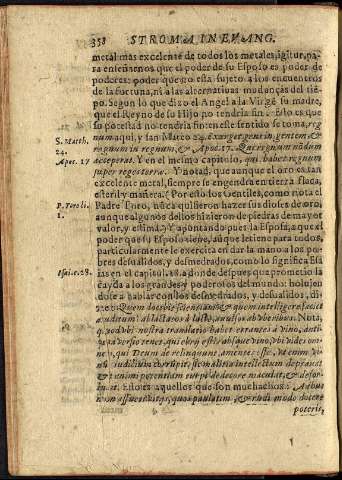 358 STROMA IN EVANG.
metal mas excelente de todos los metales, igitur, pa-
ra enseñarnos que el poder de su Esposo es poder de
poderes: poder que no està sujeto a los encuentros
de la fortuna, ni a las alternativas mudanças del tiẽ-
po. Segun lo que dizo el Angel a la Virgẽ su madre,
que el Reyno de su Hijo no tendria fin. Esto es que
su potestad no tendria fin: en este sentido se toma, reg
num aqui, y san Mateo 24. exurget gens in gentem &
S. Matth.
24.
regnum in regnum, & Apoc. 17. Qui regnum nōdum
Apoc. 17
acceperat. Y en el mismo capitulo, qui habet regnum
super reges terræ. Y notad, que aunque el oro es tan
excelente metal, siempre se engendra en tierra flaca,
esteril y mañera. Por esto los Gentiles, como nota el
P. Torobli.
1.
Padre nunca quisieron hazer sus dioses de oro,
aunque algunos dellos hizieron de piedras de mayor
valor, y estima. Y apuntando pues la Esposa, aque el
poder que su Esposo tiene, aũque le tiene para todos,
particularmente lo exercita en dar la mano a los po-
bres desualidos, y desmedrados, como lo significa Esa
Isai. c. 28.
ias en el capitul. 28. a donde despues que prometio la
cayda a los grandes y poderosos del mundo: holujen
dose a hablar con los desmedrados, y desualidos, di-
ze: Quem docebit scientiam? & quem intelligere faciet
auditum? ablactatos à lacte, auulsos ab vberibus. Nota,
quod vbi nostra translatio habet errantes à vino, anti-
qua versio tenet, qui ebrij estis absque vino, vbi vides om-
nes, qui Deum derelinquunt, amentes esse. Vt enim vi-
nũ iudicium corrumpit, sic malitia intellectum deprauat
& animi potentiam turpi dedecore maculat, & defor-
mat. Estos es aquellos que son muchachos: A cibus
non assueti viri, quos paulatim, & rudi modo docere
poteris,